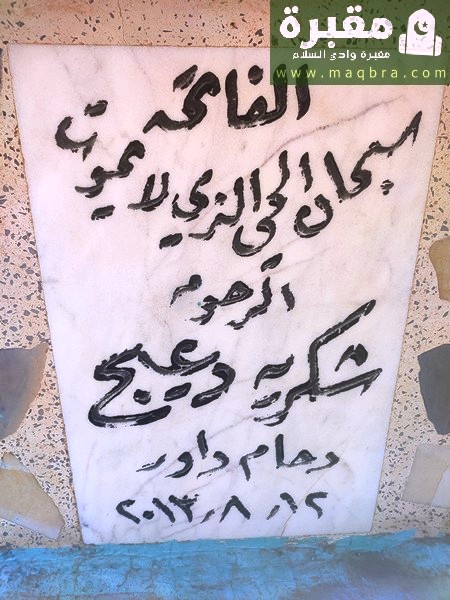 مقبرة
مقبرة وادي السلام
www.maqbra.com
الفاتحه
سبحان الحي الذي لا يموت
المرحومه
شكريه دعيج
دحام داود
٢٠١٣/٨/١٢